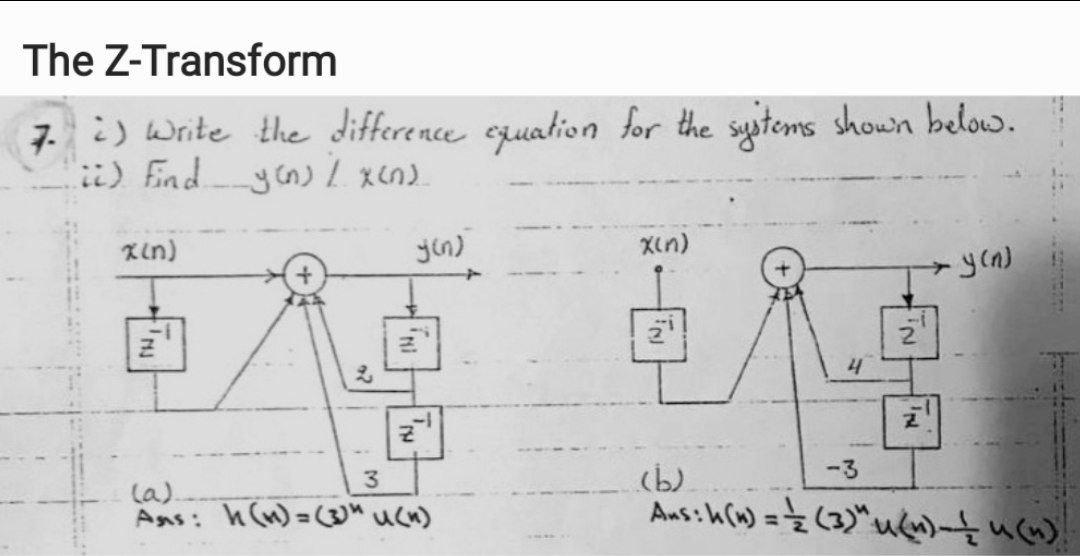 The Z-Transform
7. i) Write the difference equation for the systems shown below.
ii) Find y(n) / x(n)
x(n)
y(n)
+
z⁻¹
z⁻¹
2
z⁻¹
3
(a)
Ans: h(n) = (3)ⁿ u(n)
x(n)
+
y(n)
z⁻¹
z⁻¹
4
z⁻¹
-3
(b)
Ans: h(n) = 1/2 (3)ⁿ u(n) - 1/2 u(n)